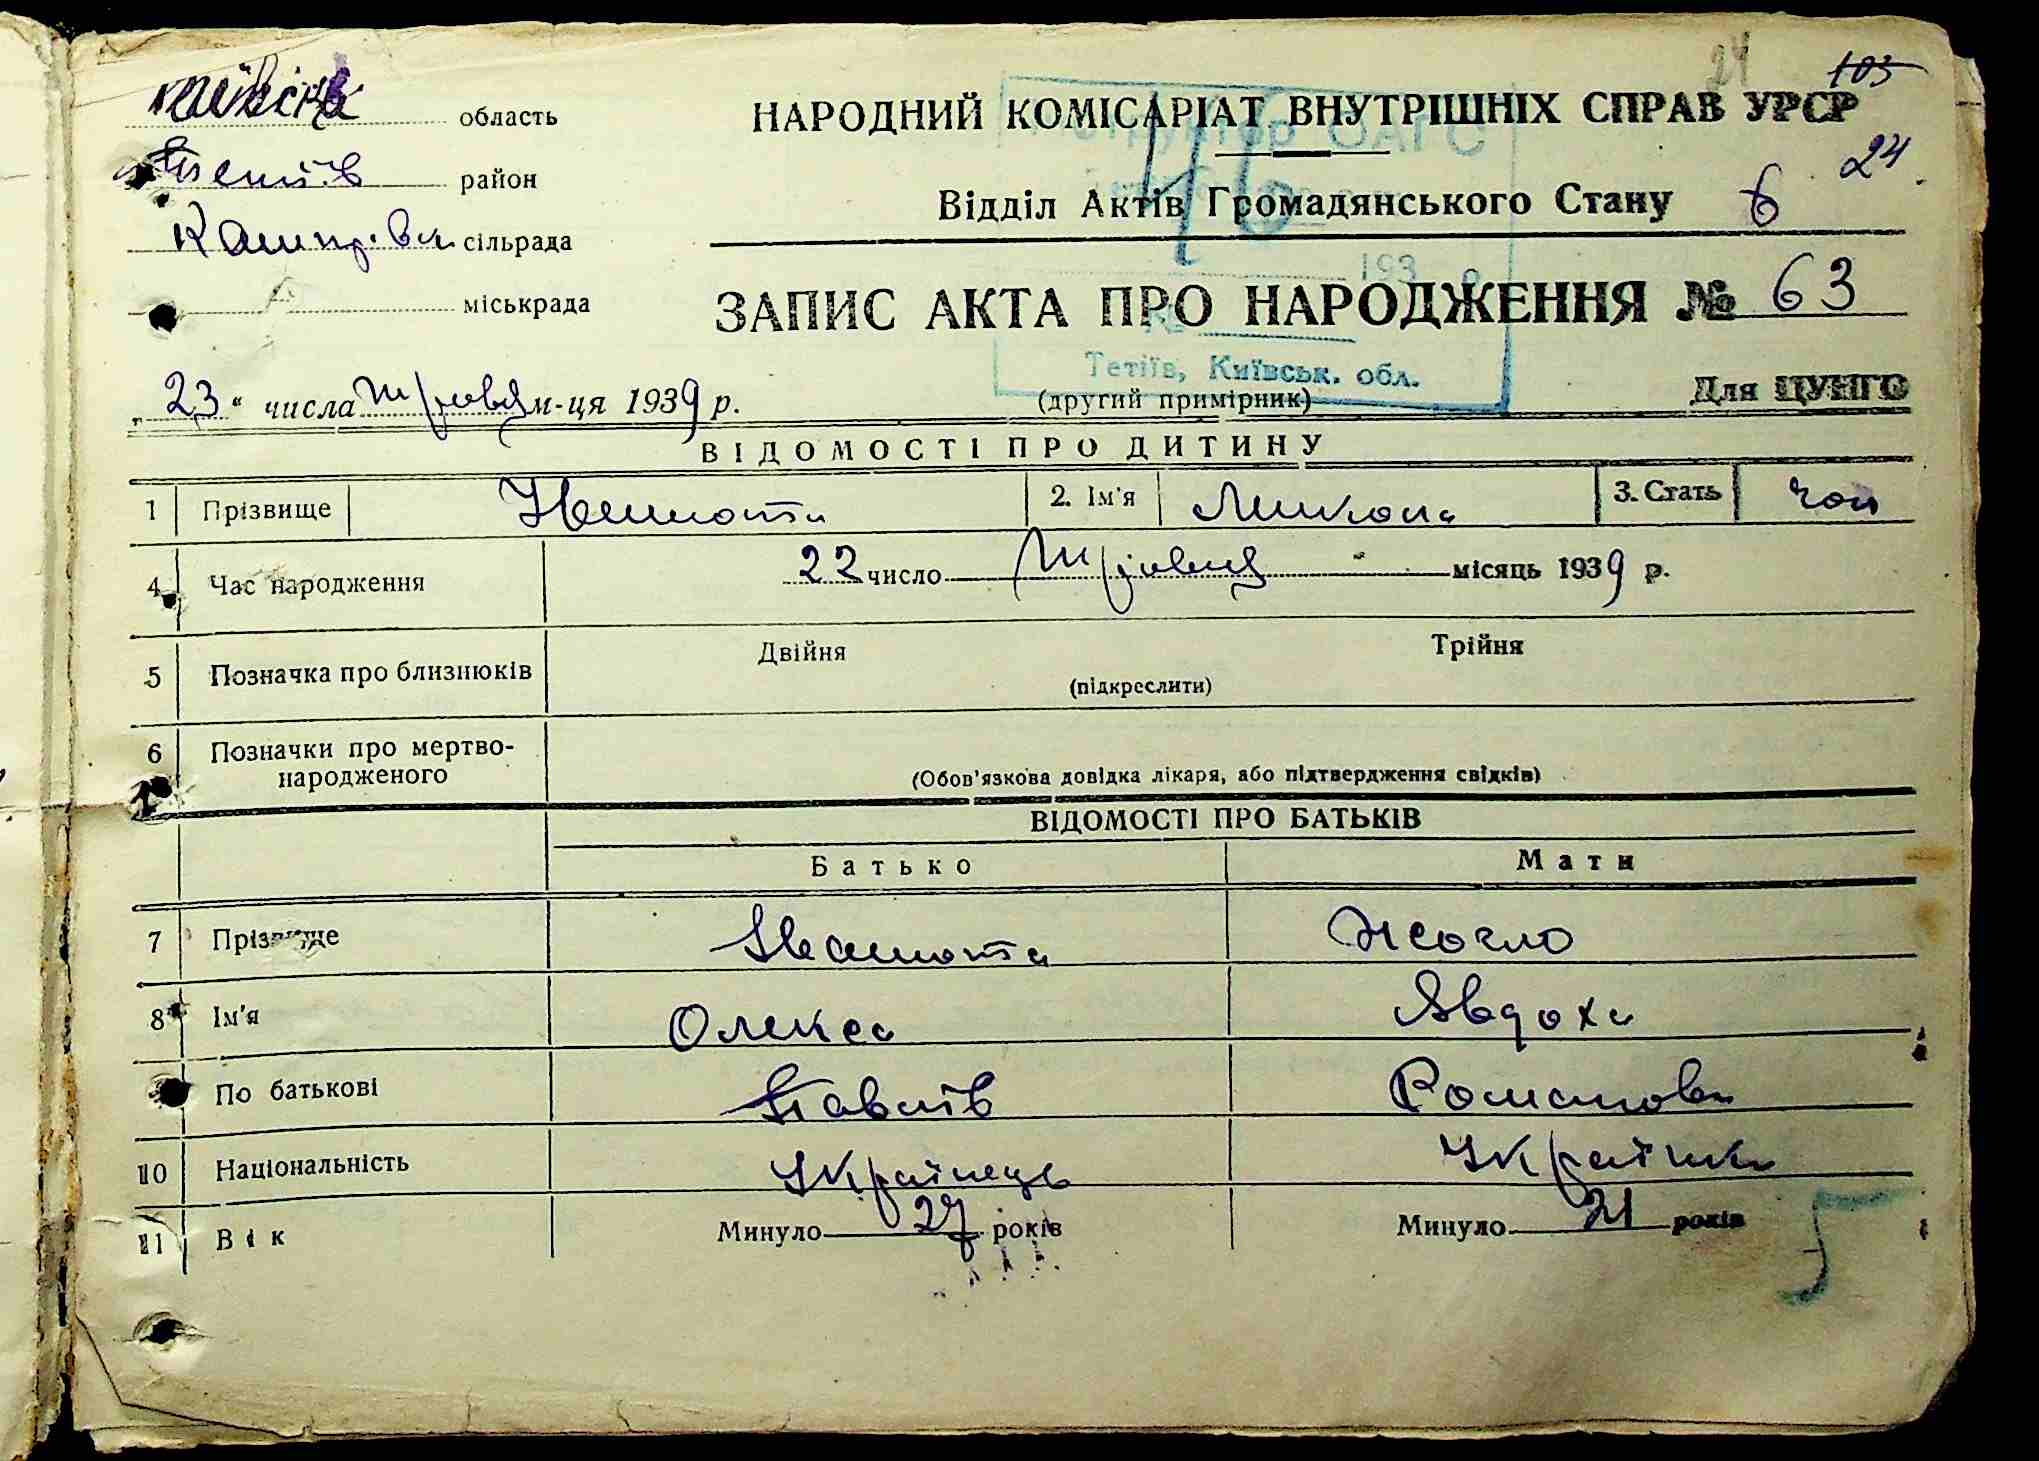 Київська область
Тетіїв район
сільрада
міськрада
24
103
24
НАРОДНИЙ КОМІСАРІАТ ВНУТРІШНІХ СПРАВ УРСР
Відділ Актів Громадянського Стану 6
ЗАПИС АКТА ПРО НАРОДЖЕННЯ № 63
ОАГС
193
Тетіїв, Київськ. обл.
„23“ числа травня м-ця 1939 р.
(другий примірник)
Для ЦУНГО
ВІДОМОСТІ ПРО ДИТИНУ
1 Прізвище 2. Ім'я Микола 3. Стать чол
4 Час народження 22 число травня місяць 1939 р.
5 Позначка про близнюків Двійня Трійня
(підкреслити)
6 Позначки про мертво-
народженого
(Обов'язкова довідка лікаря, або підтвердження свідків)
ВІДОМОСТІ ПРО БАТЬКІВ
Батько Мати
7 Прізвище
8 Ім'я Олекса Явдоха
По батькові Павлів Романовн
10 Національність Українець Українк
11 Вік Минуло 27 років Минуло 21 років
5